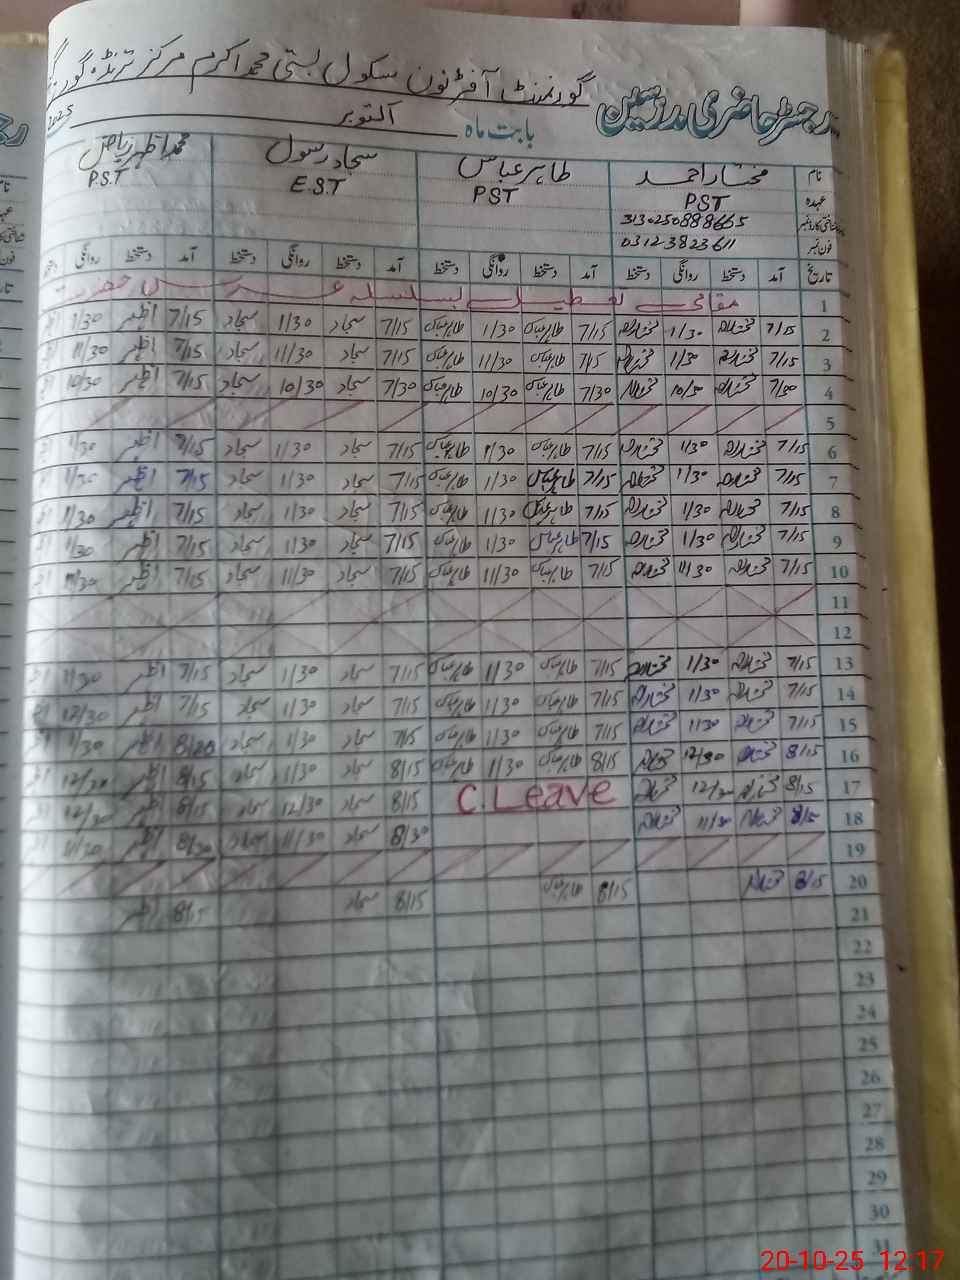 رجسٹر حاضری مدرسین گورنمنٹ آفٹرنون سکول بستی محمد اکرم مرکز ترنڈہ
بابت ماہ اکتوبر 2025
نام مختار احمد طاہر عباس سجاد رسول محمد اظہر ریاض
عہدہ PST PST E.S.T P.S.T
شناختی کارڈ نمبر 3130250888665
فون نمبر 03123823611
تاریخ آمد دستخط روانگی دستخط آمد دستخط روانگی دستخط آمد دستخط روانگی دستخط آمد دستخط روانگی
1 مقامی تعطیل بسلسلہ عرس حضرت
2 7/15 مختار 1/30 مختار 7/15 طاہر عباس 1/30 طاہر عباس 7/15 سجاد 1/30 سجاد 7/15 اظہر 1/30
3 7/15 مختار 11/30 مختار 7/15 طاہر عباس 11/30 طاہر عباس 7/15 سجاد 11/30 سجاد 7/15 اظہر 11/30
4 7/30 مختار 10/30 مختار 7/30 طاہر عباس 10/30 طاہر عباس 7/30 سجاد 10/30 سجاد 7/15 اظہر 10/30
5
6 7/15 مختار 1/30 مختار 7/15 طاہر عباس 1/30 طاہر عباس 7/15 سجاد 1/30 سجاد 7/15 اظہر 1/30
7 7/15 مختار 1/30 مختار 7/15 طاہر عباس 1/30 طاہر عباس 7/15 سجاد 1/30 سجاد 7/15 اظہر 1/30
8 7/15 مختار 1/30 مختار 7/15 طاہر عباس 1/30 طاہر عباس 7/15 سجاد 1/30 سجاد 7/15 اظہر 1/30
9 7/15 مختار 1/30 مختار 7/15 طاہر عباس 1/30 طاہر عباس 7/15 سجاد 1/30 سجاد 7/15 اظہر 1/30
10 7/15 مختار 11/30 مختار 7/15 طاہر عباس 11/30 طاہر عباس 7/15 سجاد 11/30 سجاد 7/15 اظہر 11/30
11
12
13 7/15 مختار 1/30 مختار 7/15 طاہر عباس 1/30 طاہر عباس 7/15 سجاد 1/30 سجاد 7/15 اظہر 1/30
14 7/15 مختار 1/30 مختار 7/15 طاہر عباس 1/30 طاہر عباس 7/15 سجاد 1/30 سجاد 7/15 اظہر 12/30
15 7/15 مختار 1/30 مختار 7/15 طاہر عباس 1/30 طاہر عباس 7/15 سجاد 1/30 سجاد 8/20 اظہر 1/30
16 8/15 مختار 12/30 مختار 8/15 طاہر عباس 1/30 طاہر عباس 8/15 سجاد 1/30 سجاد 8/15 اظہر 12/30
17 8/15 مختار 12/30 مختار C.Leave 8/15 سجاد 12/30 سجاد 8/15 اظہر 12/30
18 8/15 مختار 11/30 مختار 8/30 سجاد 11/30 سجاد 8/30 اظہر 11/30
19
20 8/15 مختار 8/15 طاہر عباس 8/15 سجاد 8/15 اظہر
21
22
23
24
25
26
27
28
29
30
31
20-10-25 12:17